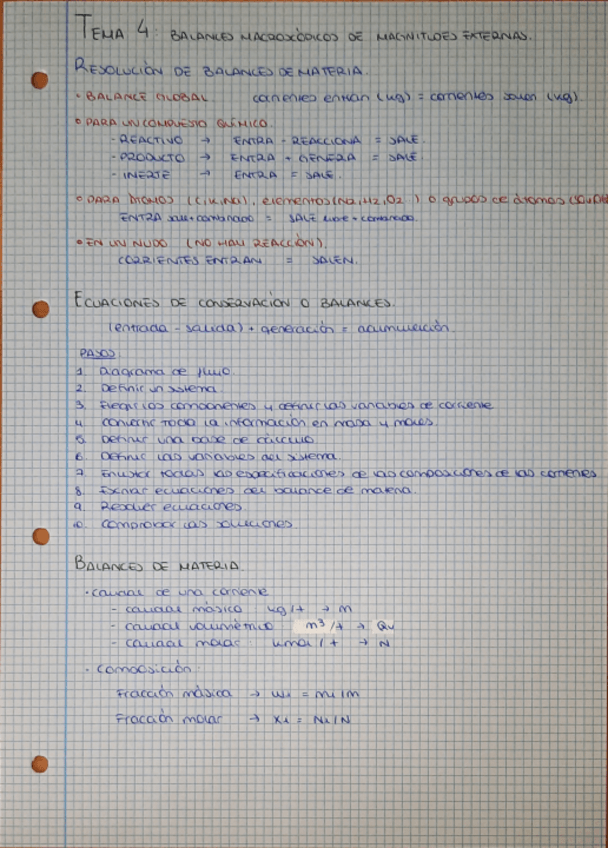 TEMA 4: BALANCES MACROSCÓPICOS DE MAGNITUDES EXTERNAS.
RESOLUCIÓN DE BALANCES DE MATERIA.
• BALANCE GLOBAL corrientes entran (kg) = corrientes salen (kg).
• PARA UN COMPUESTO QUÍMICO.
- REACTIVO → ENTRA - REACCIONA = SALE.
- PRODUCTO → ENTRA + GENERA = SALE
- INERTE → ENTRA = SALE.
• PARA ÁTOMOS (C, K, Na), elementos (N2, H2, O2) o grupos de átomos
ENTRA + combinado = SALE libre + combinado.
• EN UN NUDO (NO HAY REACCIÓN).
CORRIENTES ENTRAN = SALEN.
ECUACIONES DE CONSERVACIÓN O BALANCES.
(entrada - salida) + generación = acumulación.
PASOS:
1. Diagrama de flujo.
2. Definir un sistema.
3. Elegir los componentes y definir las variables de corriente
4. Convertir toda la información en masa y moles.
5. Definir una base de cálculo
6. Definir las variables del sistema.
7. Enlistar todas las especificaciones de las composiciones de las corrientes
8. Escribir ecuaciones del balance de materia.
9. Resolver ecuaciones.
10. Comprobar las soluciones.
BALANCES DE MATERIA.
• caudal de una corriente
- caudal másico: kg/t → m
- caudal volumétrico: m³/t → Qv
- caudal molar: kmol/t → N
• Composición:
Fracción másica → wi = mi/m
Fracción molar → xi = Ni/N